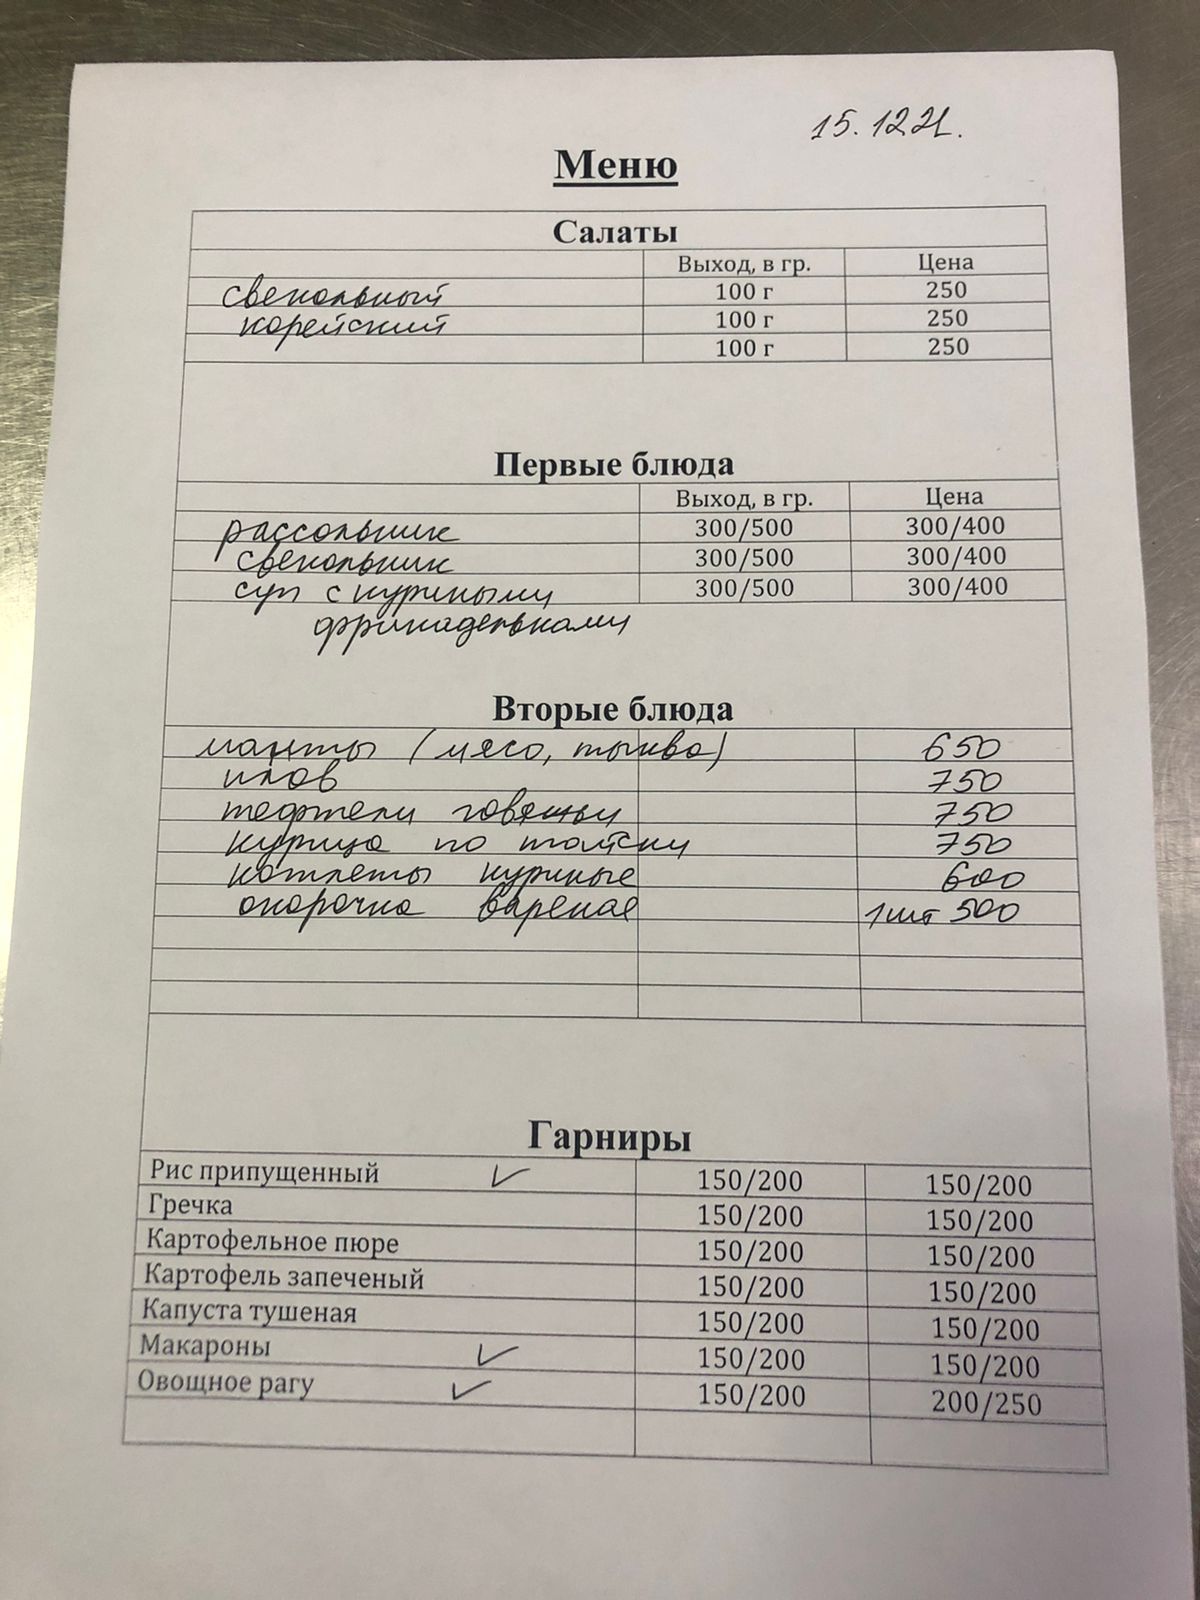 15.12.21.
Меню
Салаты
Выход, в гр. Цена
свекольный 100 г 250
корейский 100 г 250
100 г 250
Первые блюда
Выход, в гр. Цена
рассольник 300/500 300/400
свекольник 300/500 300/400
суп с куриными 300/500 300/400
фрикадельками
Вторые блюда
манты (мясо, тыква) 650
плов 750
тефтели говяжьи 750
курица по тайски 750
котлеты куриные 600
окорочка вареная 1шт 500
Гарниры
Рис припущенный ✓ 150/200 150/200
Гречка 150/200 150/200
Картофельное пюре 150/200 150/200
Картофель запеченый 150/200 150/200
Капуста тушеная 150/200 150/200
Макароны ✓ 150/200 150/200
Овощное рагу ✓ 150/200 200/250